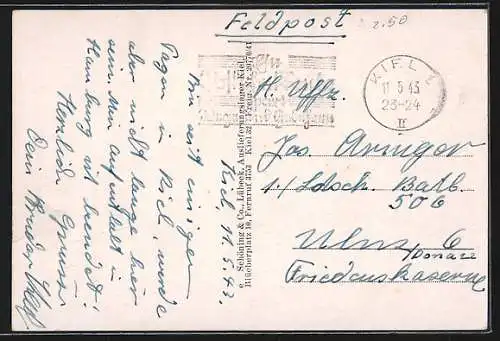 Feldpost
2.50
KIEL
11.5.43
23-24
H. Uffz.
Jos.
1./ Ldsch. Batl.
506
Ulm / Donau
Friedenskaserne
Schöning & Co., Lübeck, Auslieferungslager Kiel,
Blücherplatz 10, Fernruf 3753
Kiel, 11.5.43.
Bin seit einigen
Tagen in Kiel, werde
aber nicht lange hier
sein. Mein Aufenthalt in
Hamburg ist beendet.
Herzliche Grüsse
Dein Bruder